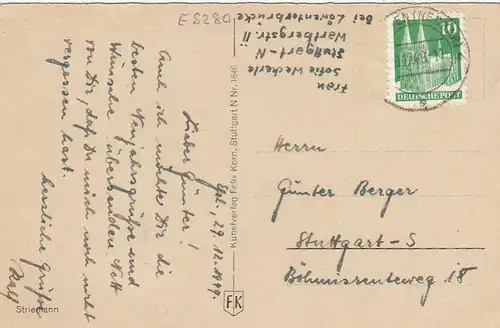 E 8280
Frau
Sofie Weckerle
Stuttgart-N
Wartbergstr. 11
Bei Löwentorbrücke
10
DEUTSCHE POST
Stgt., 29.12.1949.
Lieber Günter!
Auch ich möchte Dir die
besten Neujahrsgrüße und
Wünsche übersenden. Nett
von Dir, daß Du mich noch nicht
vergessen hast.
Herzliche Grüße
Striemann
Kunstverlag Felix Korn, Stuttgart N Nr. 1646
FK
Herrn
Günter Berger
Stuttgart-S
Böhmisreuteweg 18